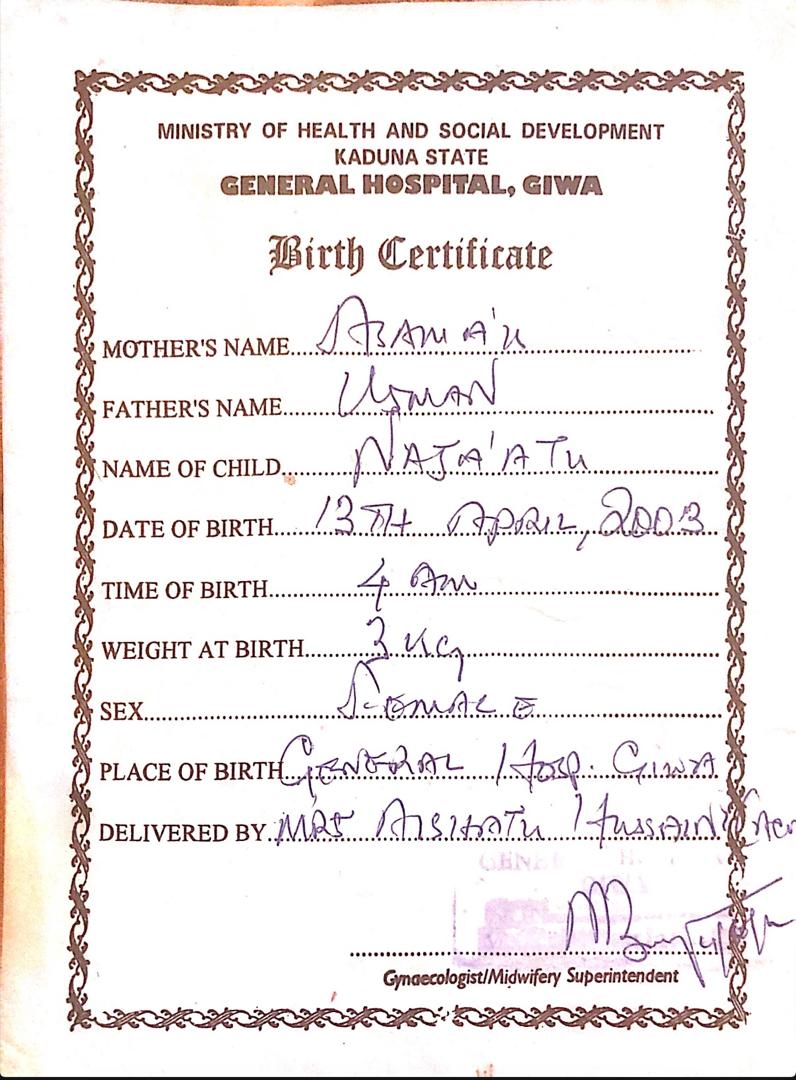 MINISTRY OF HEALTH AND SOCIAL DEVELOPMENT
KADUNA STATE
GENERAL HOSPITAL, GIWA
Birth Certificate
MOTHER'S NAME
FATHER'S NAME USMAN
NAME OF CHILD NAJA'ATU
DATE OF BIRTH 13TH APRIL, 2003
TIME OF BIRTH 4 AM
WEIGHT AT BIRTH 3 KG
SEX FEMALE
PLACE OF BIRTH GENERAL HOSP. GIWA
DELIVERED BY MRS AISHATU HUSSAINI
Gynaecologist/Midwifery Superintendent